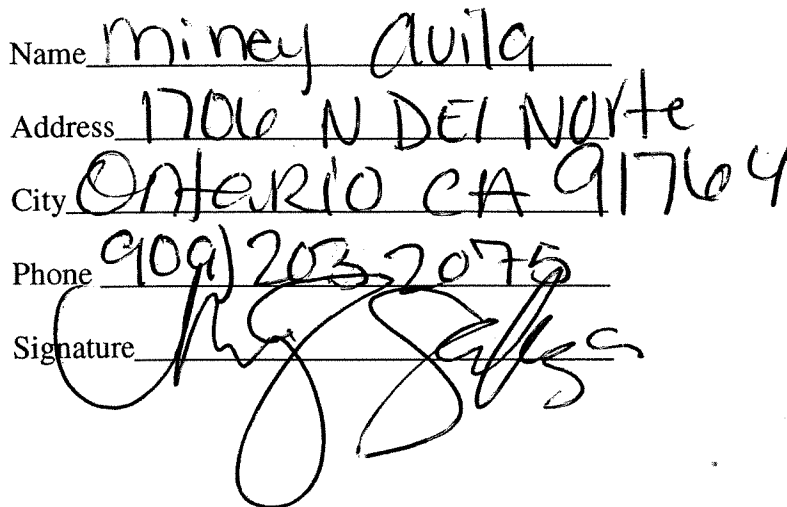 Name miney avila
Address 1706 N DEl NOrte
City OntaRiO CA 91764
Phone 909) 203 2075
Signature